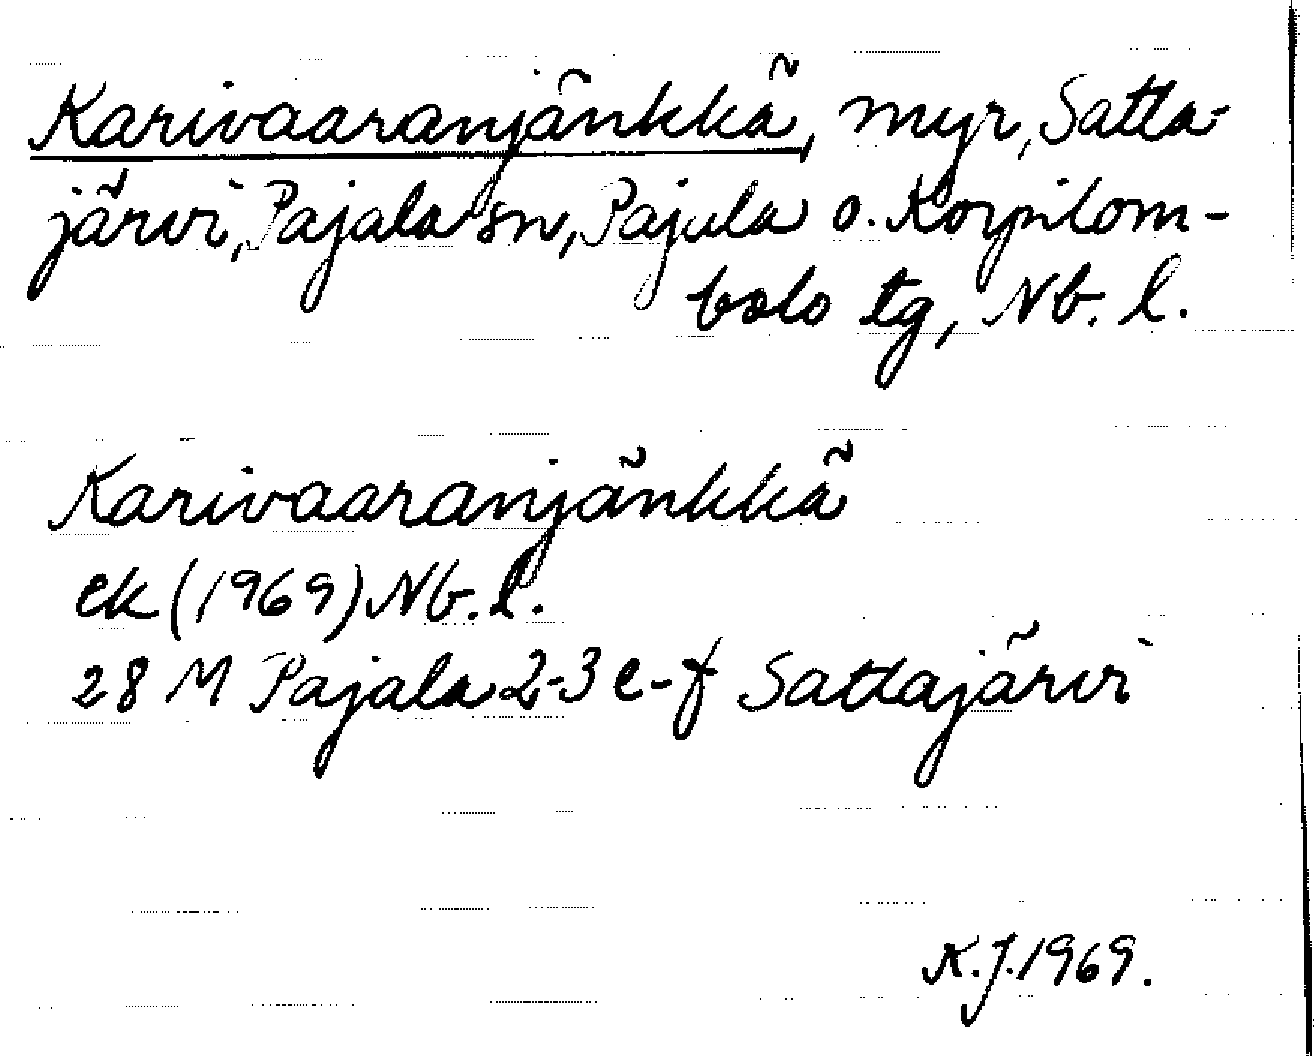 Karivaaranjänkkä, myr, Satta-
järvi, Pajala sn, Pajala o. Korpilom-
bolo tg, Nb. l.
Karivaaranjänkkä
ek (1969) Nb. l.
28 M Pajala 2-3 e-f Sattajärvi
K.J. 1969.